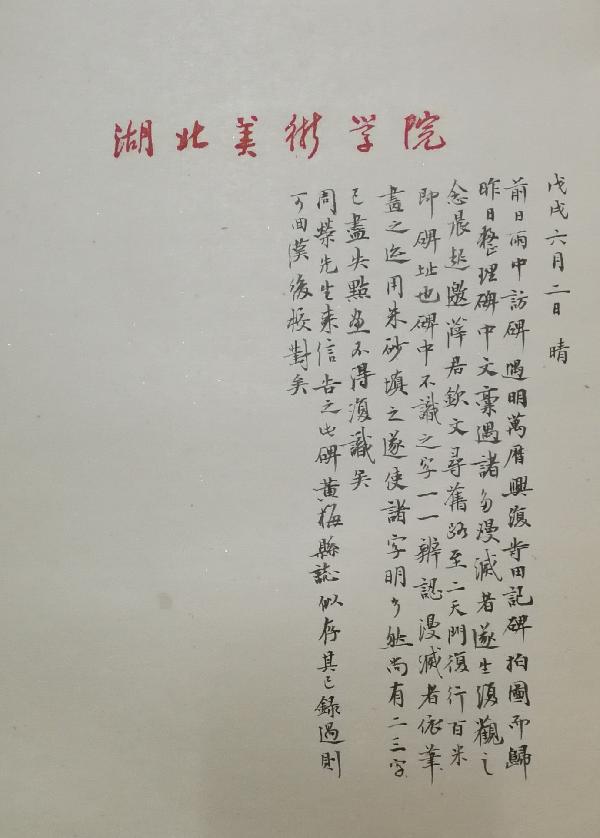 湖北美術学院
戊戌六月二日 晴
前日雨中訪碑遇明萬曆興復寺田記碑拍圖而歸
昨日整理碑中文稾遇諸多漫滅者遂生復觀之
念晨起邀薛君欽文尋舊路至二天門復行百米
即碑址也碑中不識之字一一辨認漫滅者依筆
畫之迹用朱砂填之遂使諸字明了然尚有二三字
已盡失點画不得復識矣
同榮先生来信告之此碑黄梅縣誌似存其已錄過則
可回漢後校對矣